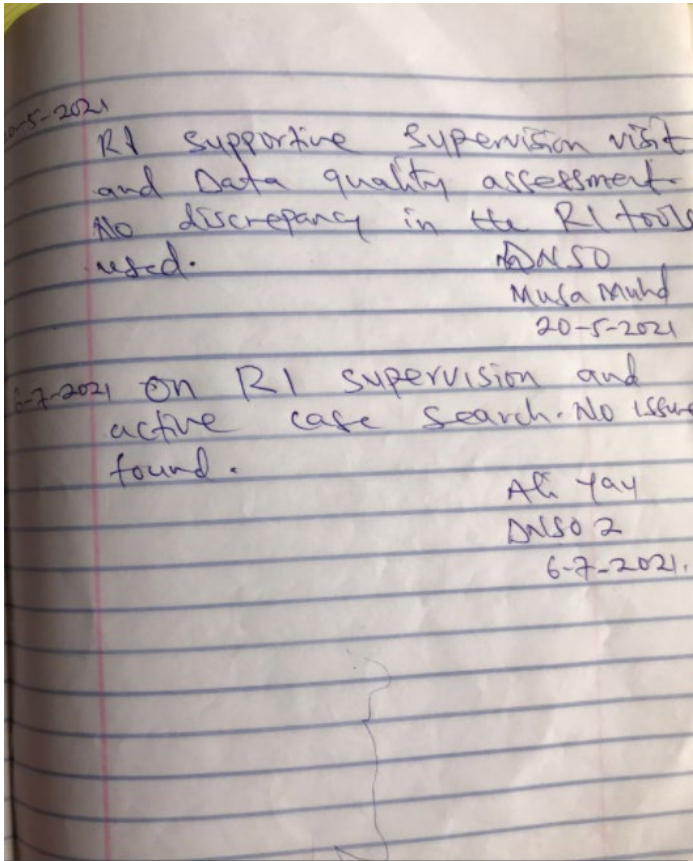 20-5-2021
RI supportive supervision visit
and Data quality assessment.
No discrepancy in the RI tools
used.
DNSO
Musa Muhd
20-5-2021
6-7-2021 On RI supervision and
active case search. No issue
found.
Ali Yay
DNSO 2
6-7-2021.